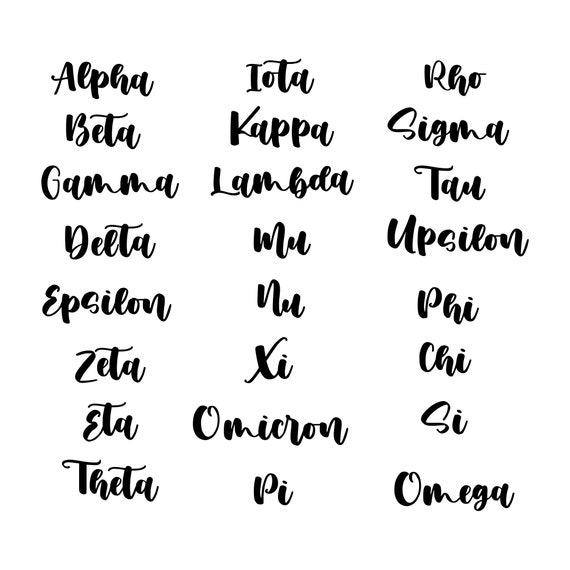 Alpha
Beta
Gamma
Delta
Epsilon
Zeta
Eta
Theta
Iota
Kappa
Lambda
Mu
Nu
Xi
Omicron
Pi
Rho
Sigma
Tau
Upsilon
Phi
Chi
Si
Omega